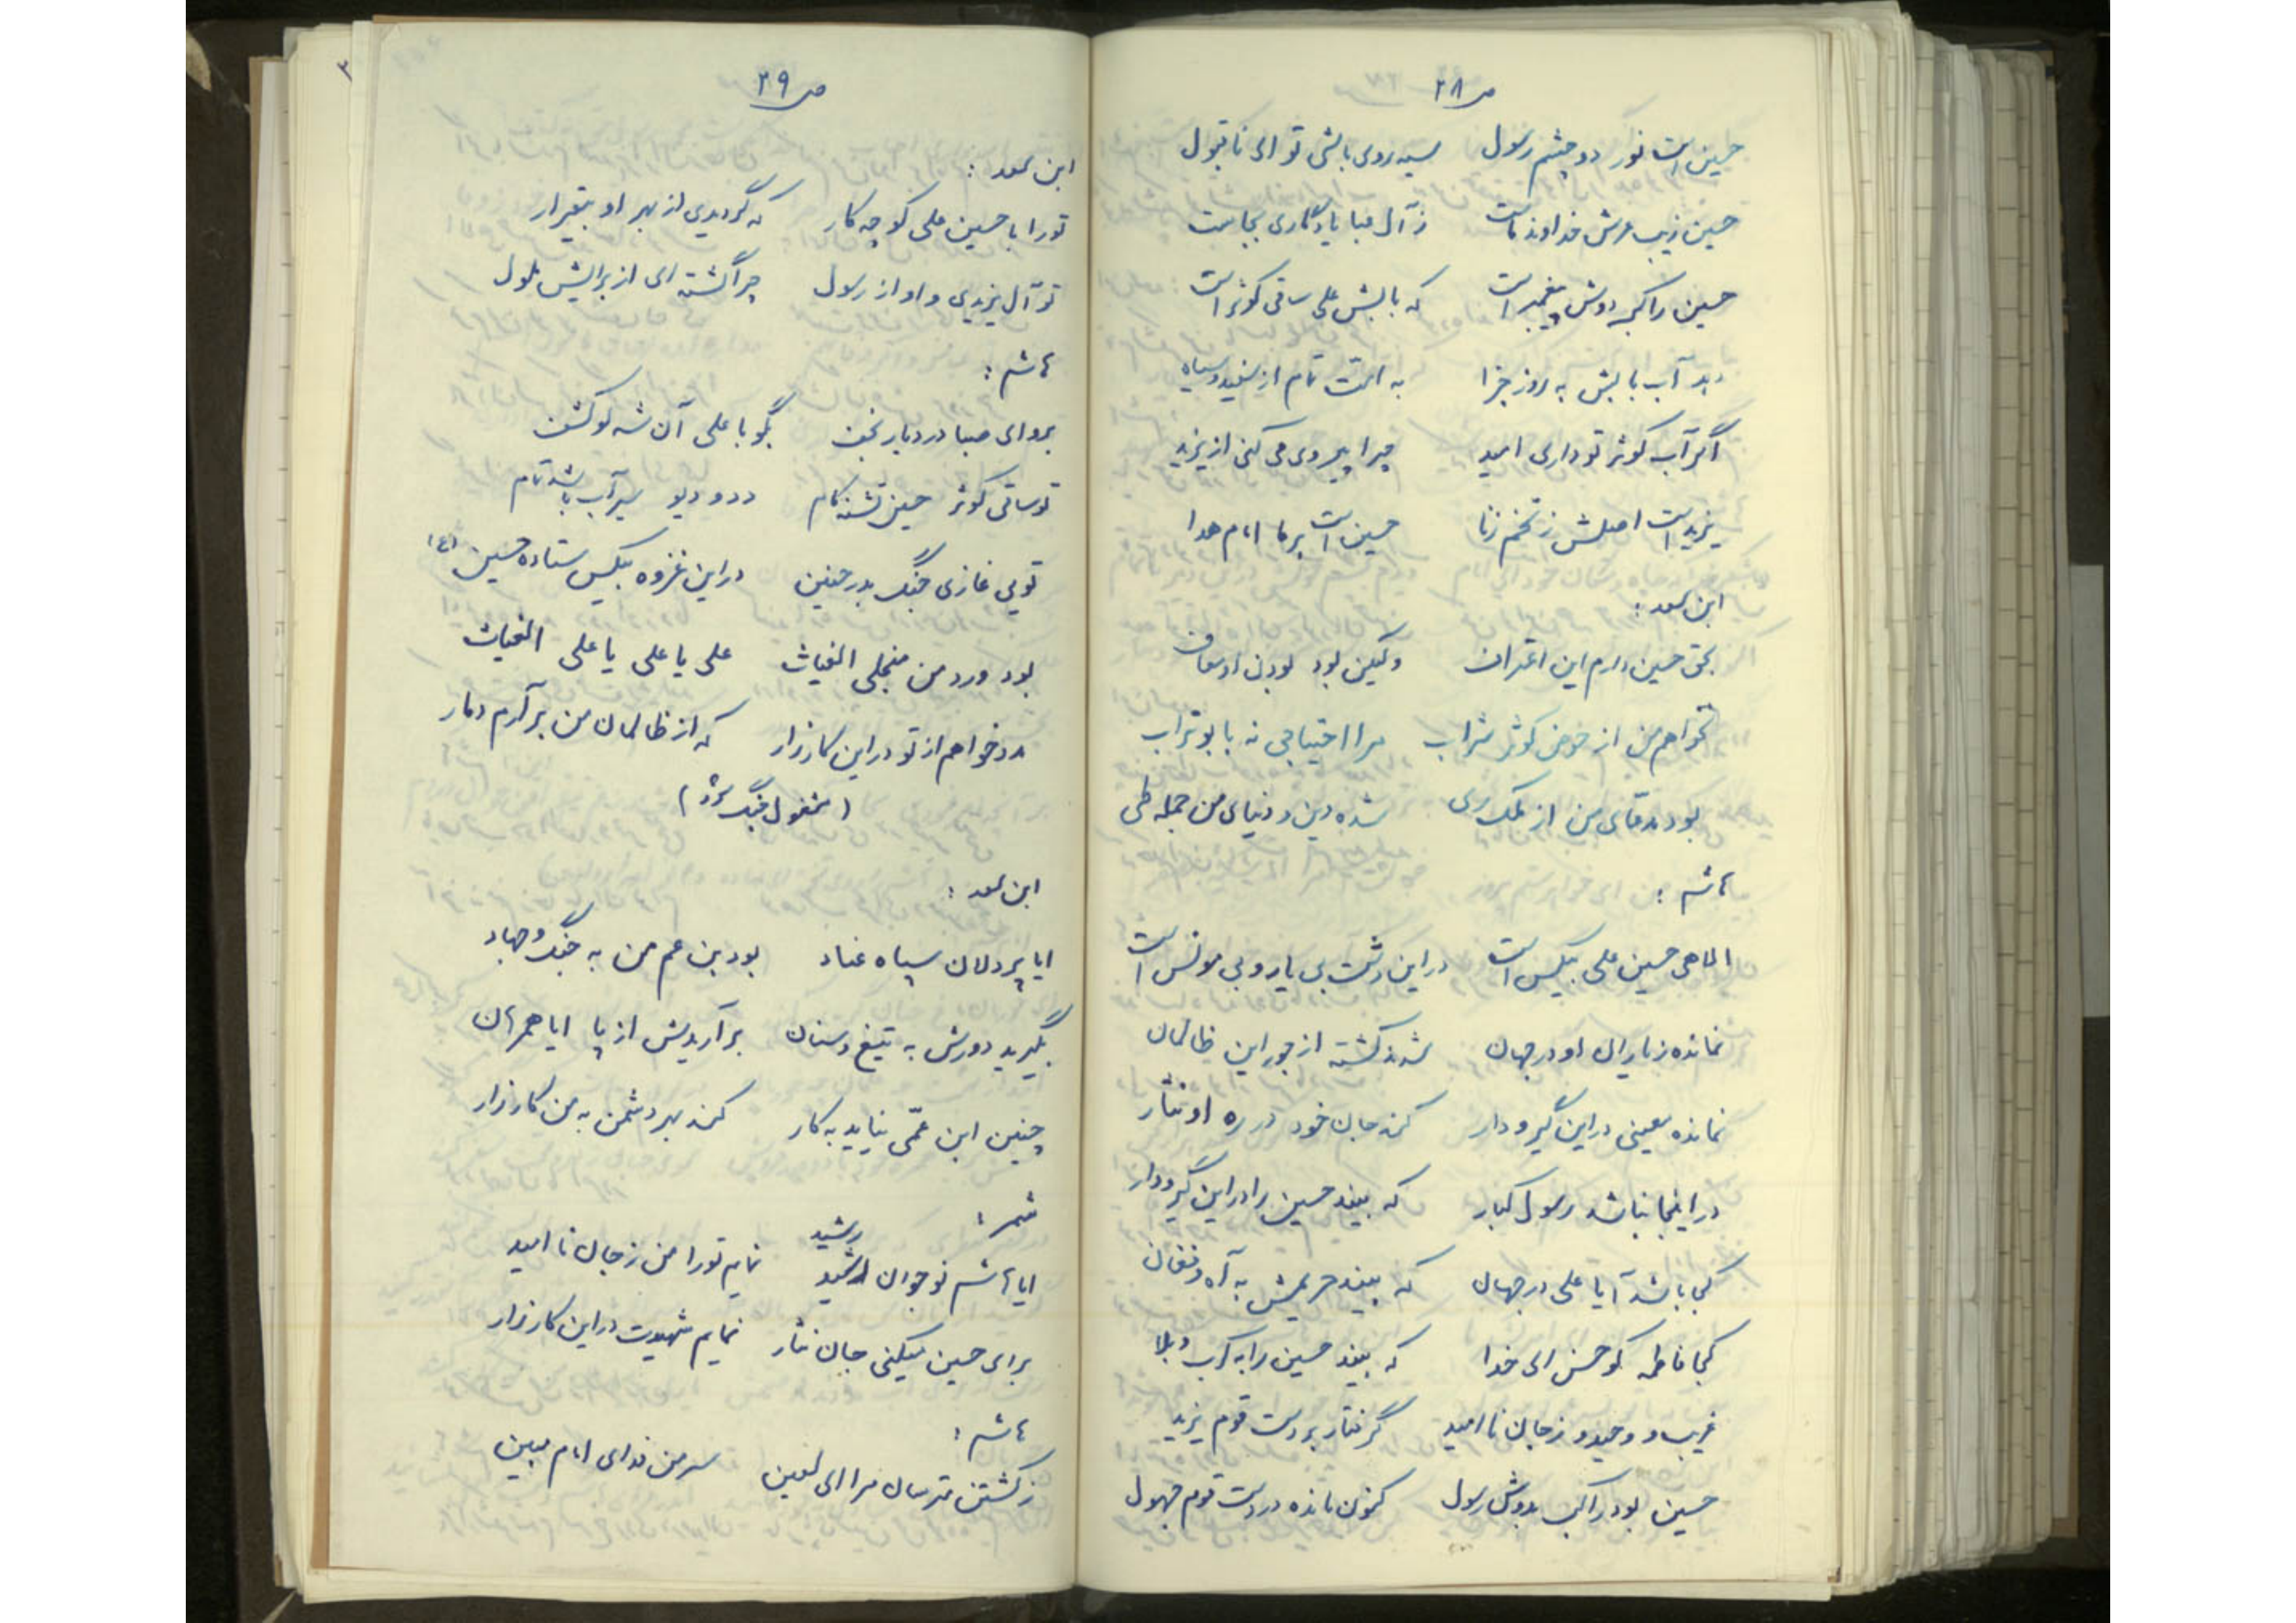 ص ۲۸
حسین است نور دو چشم رسول سیه روی باشی تو ای ناقبول
حسین زیب عرش خداوند ماست ز آل عبا یادگاری بجاست
حسین راکب دوش پیغمبر است که بابش علی ساقی کوثر است
دهد آب بابش به روز جزا به امت تمام از سفید و سیاه
اگر آب کوثر تو داری امید چرا پیروی می کنی از یزید
یزید است اصلش ز تخم زنا حسین است بر ما امام هدا
ابن سعد :
بحق حسین دارم این اعتراف ولیکن بود بودن او معاف
نخواهم من از حوض کوثر شراب مرا احتیاجی نه با بوتراب
بود مدعای من از ملک ری شده دین و دنیای من جمله طی
هاشم :
الاهی حسین علی بیکس است در این دشت بی یار و بی مونس است
نمانده ز یاران او در جهان شدند کشته از جور این ظالمان
نمانده معینی در این گیر و دار کند جان خود در ره او نثار
در اینجا نباشد رسول کبار که بیند حسین را در این گیر و دار
کجا باشد آیا علی در جهان که بیند حریمش به آه و فغان
کجا فاطمه کو حسن ای خدا که بیند حسین را به کرب و بلا
غریب و وحید و ز جان ناامید گرفتار بر دست قوم یزید
حسین بود راکب بدوش رسول کنون مانده در دست قوم جهول
ص ۲۹
ابن سعد :
تو را با حسین علی گو چه کار که گردیدی از بهر او بیقرار
تو آل یزیدی و او از رسول چرا گشته ای از برایش ملول
هاشم :
برو ای صبا در دیار نجف بگو با علی آن شه لو کشف
تو ساقی کوثر حسین تشنه کام دد و دیو سیرآب باشد تمام
تویی غازی جنگ بدر حنین در این غزوه بیکس ستاده حسین (ع)
بود ورد من منجلی الغیاث علی یا علی یا علی الغیاث
مدد خواهم از تو در این کارزار که از ظالمان من برآرم دمار
( مشغول جنگ شود )
ابن سعد :
ایا پردلان سپاه عناد بود بن عم من به جنگ و جهاد
بگیرید دورش به تیغ و سنان برآریدش از پا ایا همرهان
چنین ابن عمّی نیاید به کار کند بهر دشمن به من کارزار
شمر :
رشید
ایا هاشم نوجوان رشید نمایم تو را من ز جان ناامید
برای حسین میکنی جان نثار نمایم شهیدت در این کارزار
هاشم :
ز کشتن مترسان مرا ای لعین سر من فدای امام مبین